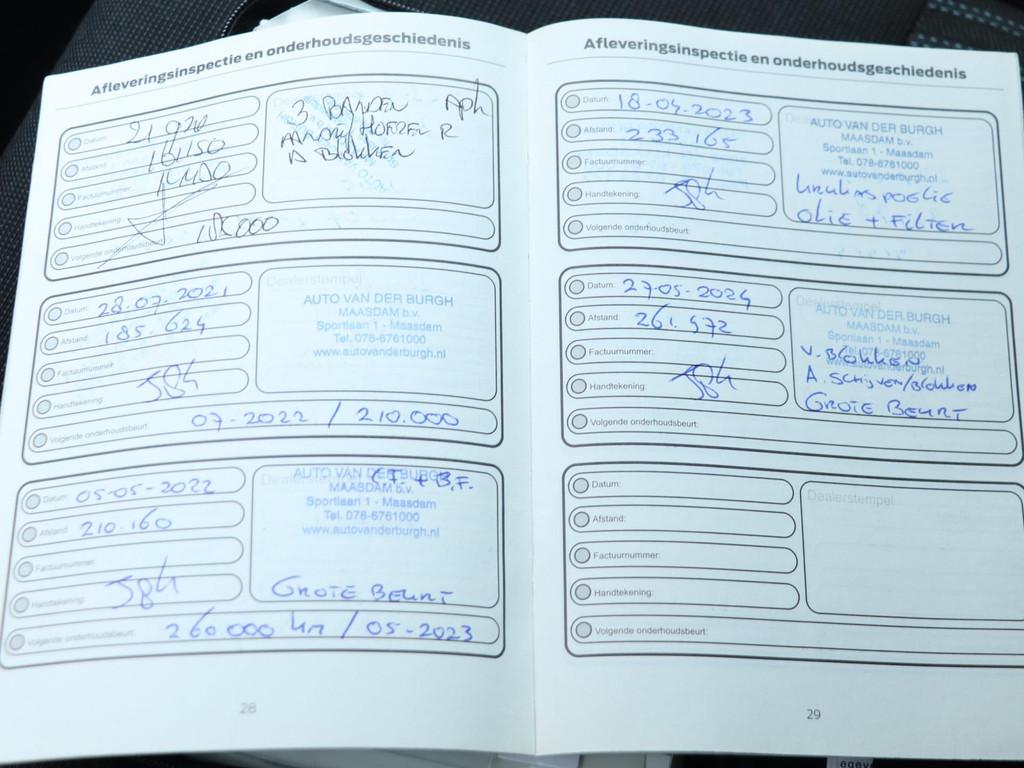 Afleveringsinspectie en onderhoudsgeschiedenis
Datum:
Afstand:
Factuurnummer:
Handtekening:
Volgende onderhoudsbeurt: 185000
3 BANDEN APK
HOEZEL R
A BLOKKEN
Datum: 28.07.2021
Afstand: 185.624
Factuurnummer:
Handtekening:
Volgende onderhoudsbeurt: 07-2022 / 210.000
Dealerstempel
AUTO VAN DER BURGH
MAASDAM b.v.
Sportlaan 1 - Maasdam
Tel. 078-6761000
www.autovanderburgh.nl
Datum: 05-05-2022
Afstand: 210.160
Factuurnummer:
Handtekening:
Volgende onderhoudsbeurt: 260.000 km / 05-2023
Dealerstempel
AUTO VAN DER BURGH
MAASDAM b.v.
Sportlaan 1 - Maasdam
Tel. 078-6761000
www.autovanderburgh.nl
GROTE BEURT
28
Afleveringsinspectie en onderhoudsgeschiedenis
Datum: 18-04-2023
Afstand: 233.165
Factuurnummer:
Handtekening:
Volgende onderhoudsbeurt:
AUTO VAN DER BURGH
MAASDAM b.v.
Sportlaan 1 - Maasdam
Tel. 078-6761000
www.autovanderburgh.nl
OLIE + FILTER
Datum: 27-05-2024
Afstand: 261.972
Factuurnummer:
Handtekening:
Volgende onderhoudsbeurt:
Dealerstempel
AUTO VAN DER BURGH
MAASDAM b.v.
Sportlaan 1 - Maasdam
Tel. 078-6761000
www.autovanderburgh.nl
V. BLOKKEN
A. SCHIJVEN/BLOKKEN
GROTE BEURT
Datum:
Afstand:
Factuurnummer:
Handtekening:
Volgende onderhoudsbeurt:
Dealerstempel
29